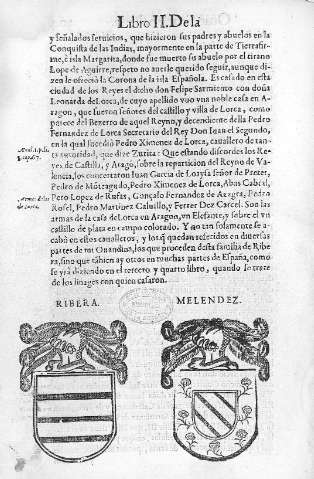 Libro II. De la
y señalados seruicios, que hizieron sus padres y abuelos en la
Conquista de las Indias, mayormente en la parte de Tierrafir-
me, è isla Margarita, donde fue muerto su abuelo por el tirano
Lope de Aguirre, respeto no auerle querido seguir, aunque di-
zen le ofreciò la Corona de la isla Española. Es casado en esta
ciudad de los Reyes el dicho don Felipe Sarmiento con doña
Leonarda de Lorca, de cuyo apellido vuo vna noble casa en A-
ragon, que fueron señores del castillo y villa de Lorca, como
parece del Bezerro de aquel Reyno, y decendiente della Pedro
Fernandez de Lorca Secretario del Rey Don Iuan el Segundo,
en la qual sucediò Pedro Ximenez de Lorca, cauallero de tan-
ta autoridad, que dize Zurita: Que estando discordes los Re-
yes de Castilla, y Aragõ, sobre la reparticion del Reyno de Va-
lencia, los concertaron Iuan Garcia de Loaysa Señor de Petrer,
Pedro de Mõtagudo, Pedro Ximenez de Lorca, Abas Cabeal,
Pero Lopez de Rufas, Gonçalo Fernandez de Azagra, Pedro
Rosel, Pedro Martinez Caluillo, y Ferrer Dez Carcel. Son las
armas de la casa de Lorca en Aragon, vn Elefante, y sobre el vn
castillo de plata en campo colorado. Y no tan solamente se a-
cabò en estos caualleros, y los q̃ quedan referidos en diuersas
partes de mi Ouandina, los que proceden desta familia de Ribe
ra, sino que tãbien ay otros en muchas partes de España, como
se yrà diziendo en el tercero y quarto libro, quando se trate
de los linages con quien casaron.
RIBERA. MELENDEZ.